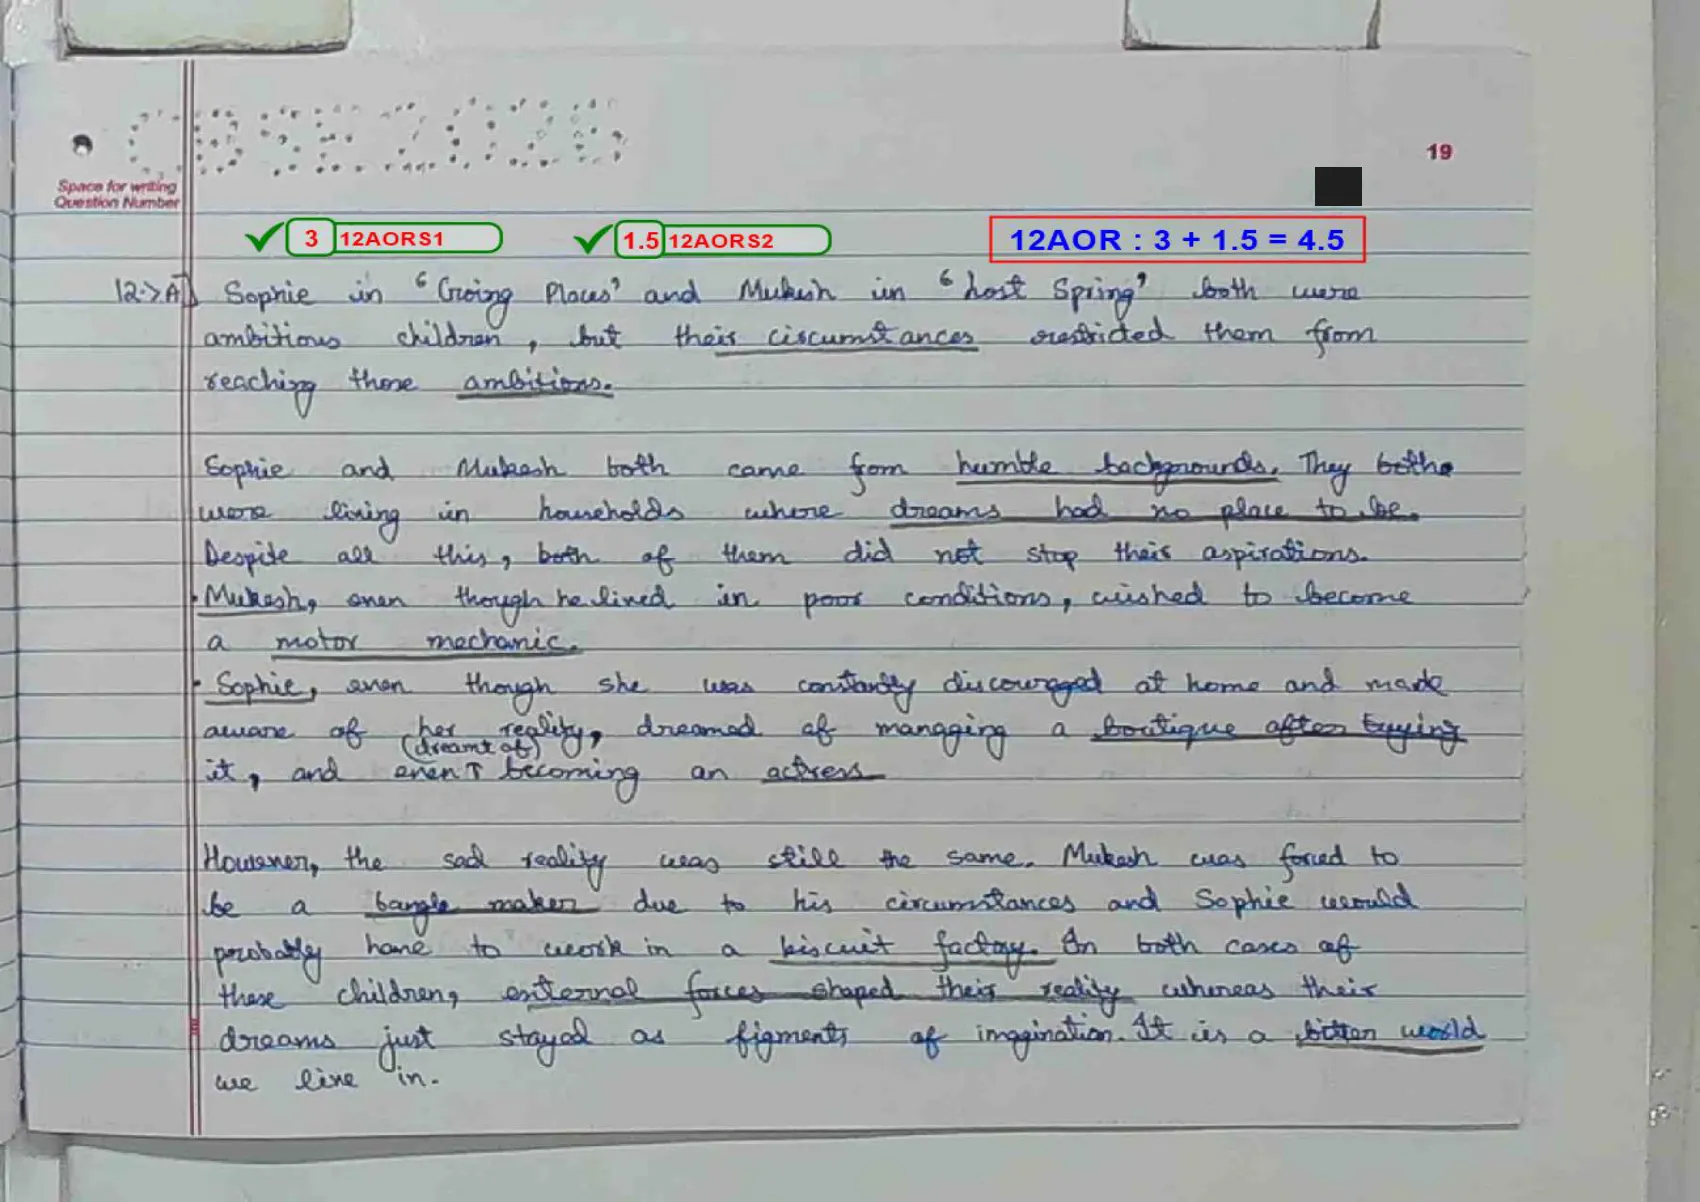 CBSE 2026
19
Space for writing
Question Number
3 12AORS1 1.5 12AORS2 12AOR : 3 + 1.5 = 4.5
12.>A] Sophie in "Going Places" and Mukesh in "Lost Spring" both were
ambitious children, but their circumstances restricted them from
reaching those ambitions.
Sophie and Mukesh both came from humble backgrounds. They both
were living in households where dreams had no place to be.
Despite all this, both of them did not stop their aspirations.
• Mukesh, even though he lived in poor conditions, wished to become
a motor mechanic.
• Sophie, even though she was constantly discouraged at home and made
aware of her reality, dreamed of managing a boutique after buying
it, and even (dreamt of) becoming an actress
However, the sad reality was still the same. Mukesh was forced to
be a bangle maker due to his circumstances and Sophie would
probably have to work in a biscuit factory. In both cases of
these children, external forces shaped their reality whereas their
dreams just stayed as figments of imagination. It is a bitter world
we live in.